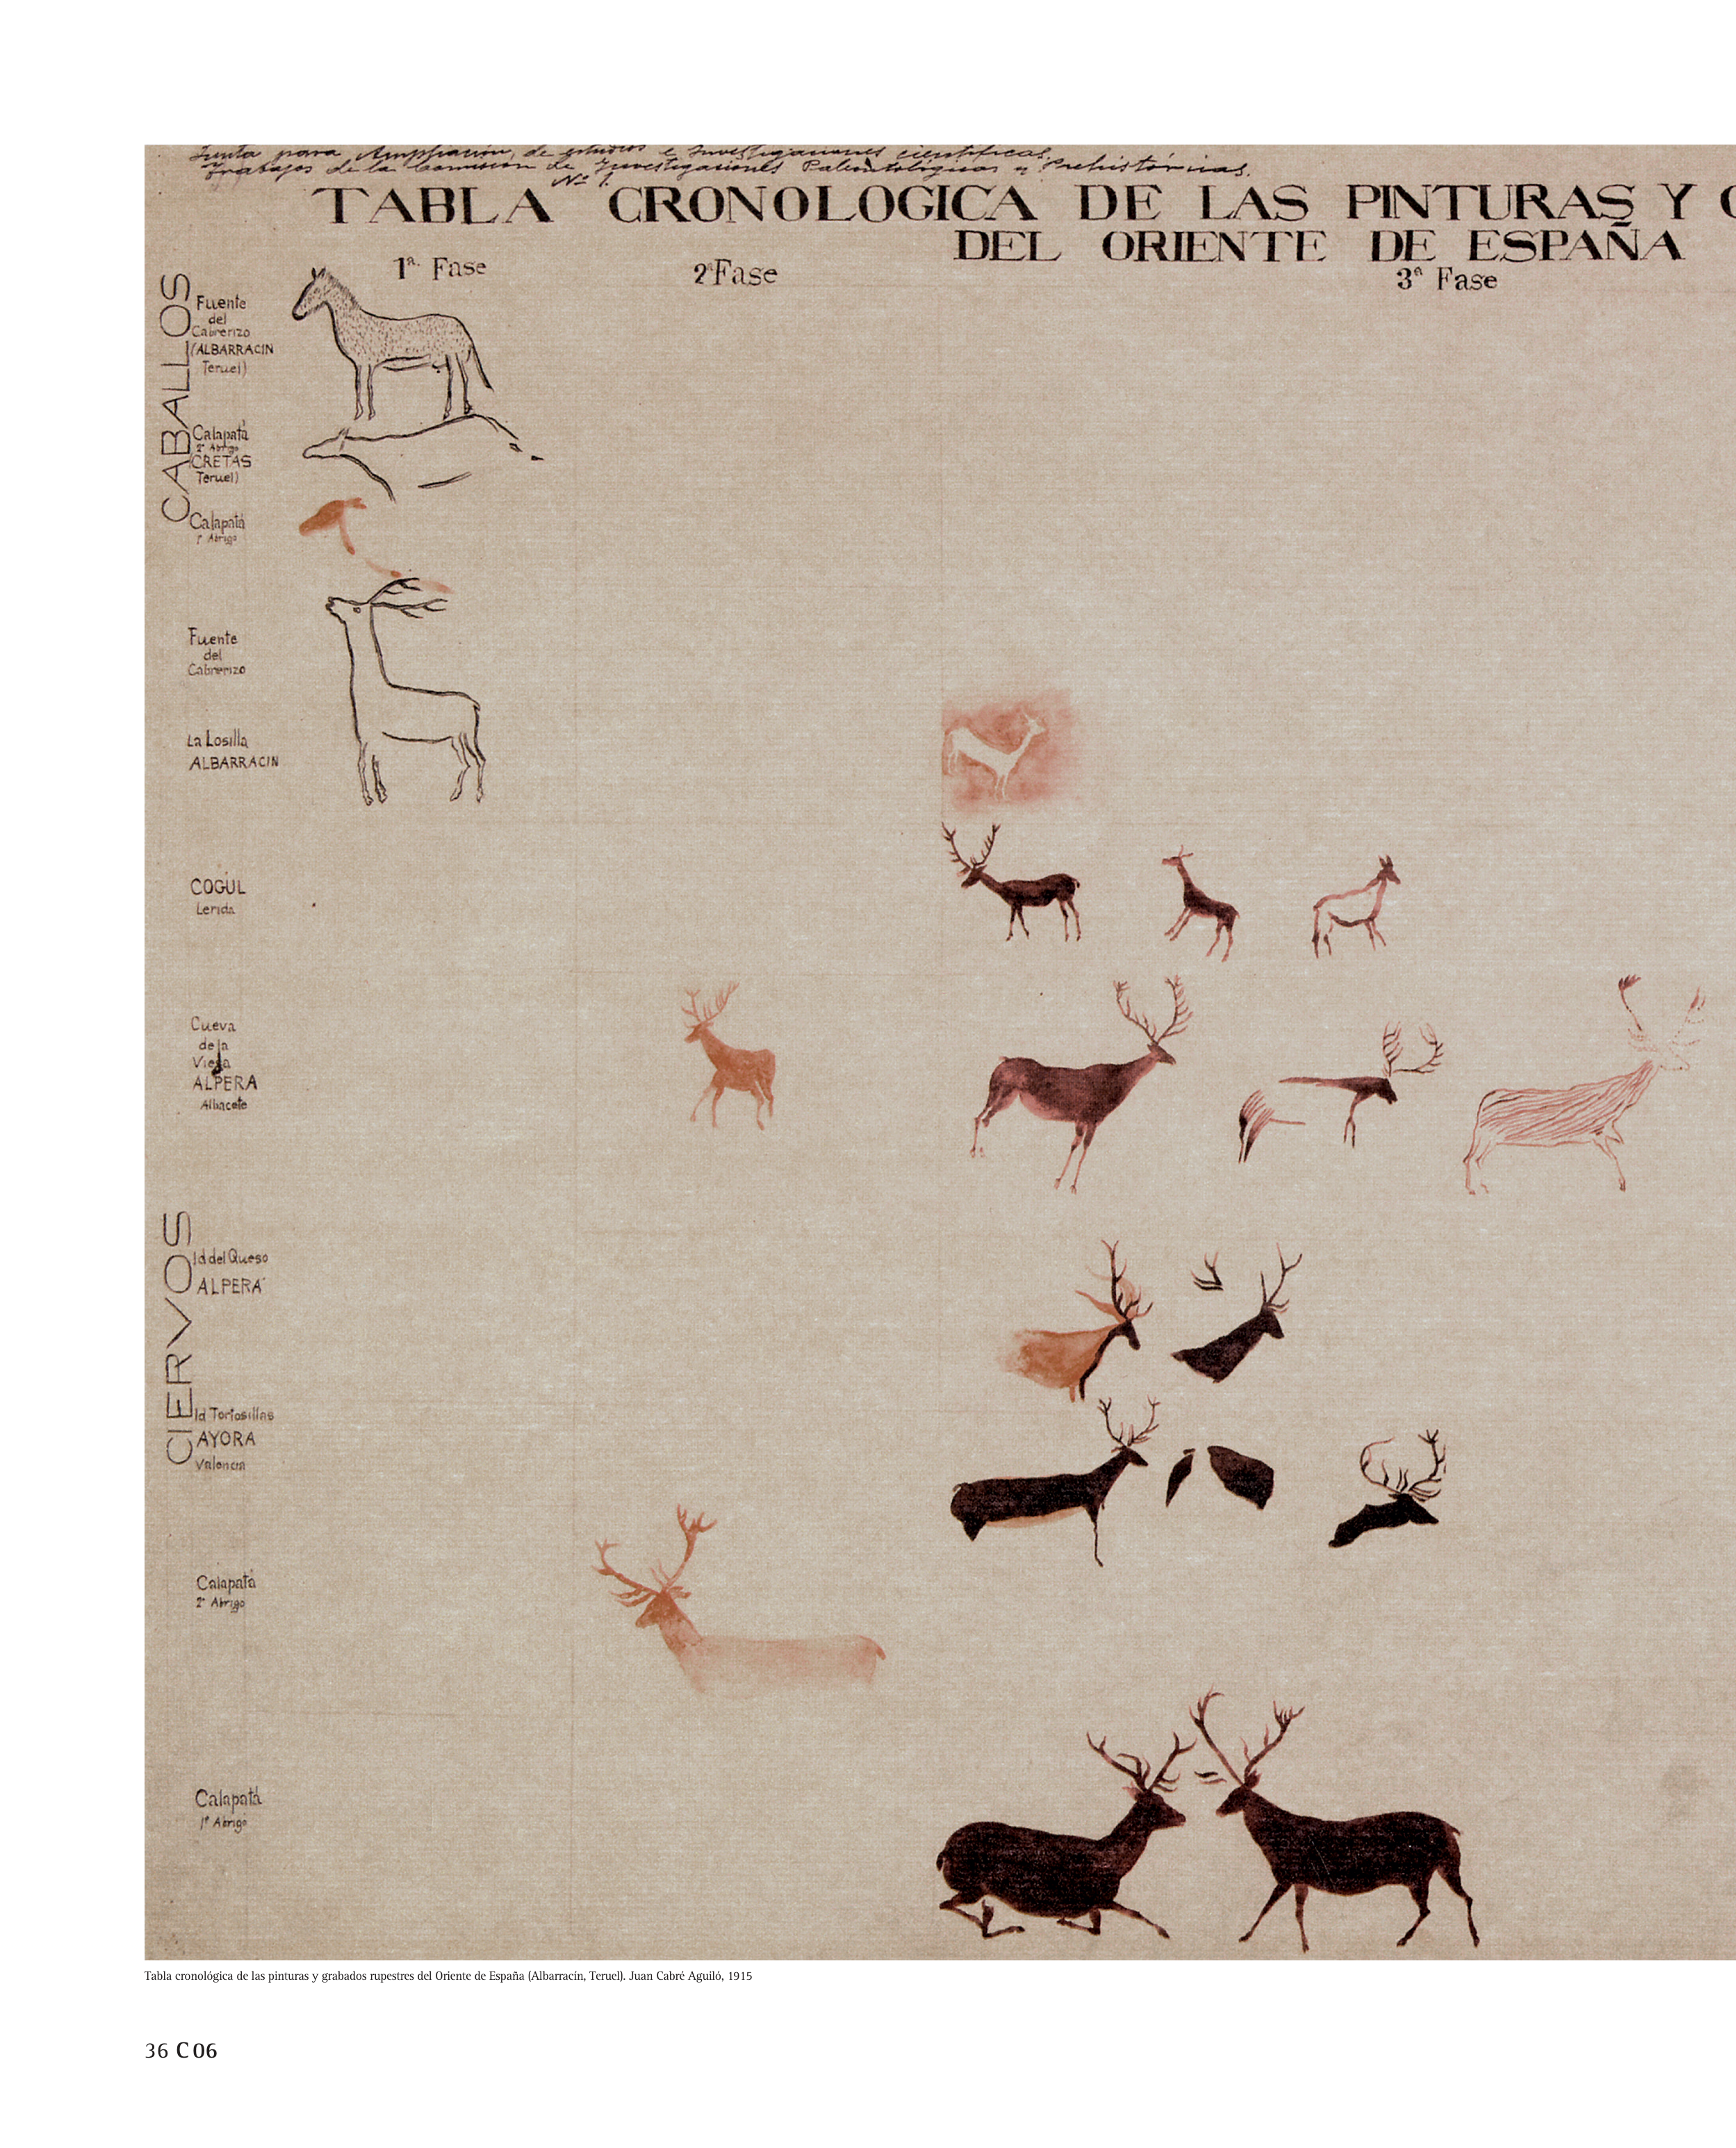 Junta para Ampliación de estudios e Investigaciones científicas.
Trabajos de la Comisión de Investigaciones Paleontológicas y Prehistóricas.
Nº 1.
TABLA CRONOLOGICA DE LAS PINTURAS Y
DEL ORIENTE DE ESPAÑA
1ª. Fase
2ª Fase
3ª Fase
CABALLOS
Fuente
del
Cabrerizo
(ALBARRACIN
Teruel)
Calapatá
2º Abrigo
CRETAS
Teruel)
Calapatá
1º Abrigo
Fuente
del
Cabrerizo
La Losilla
ALBARRACIN
COGUL
Lerida
Cueva
de la
Vieja
ALPERA
Albacete
CIERVOS
Id del Queso
ALPERA
Id Tortosillas
AYORA
Valencia
Calapatá
2º Abrigo
Calapatá
1º Abrigo
Tabla cronológica de las pinturas y grabados rupestres del Oriente de España (Albarracín, Teruel). Juan Cabré Aguiló, 1915
36 C 06